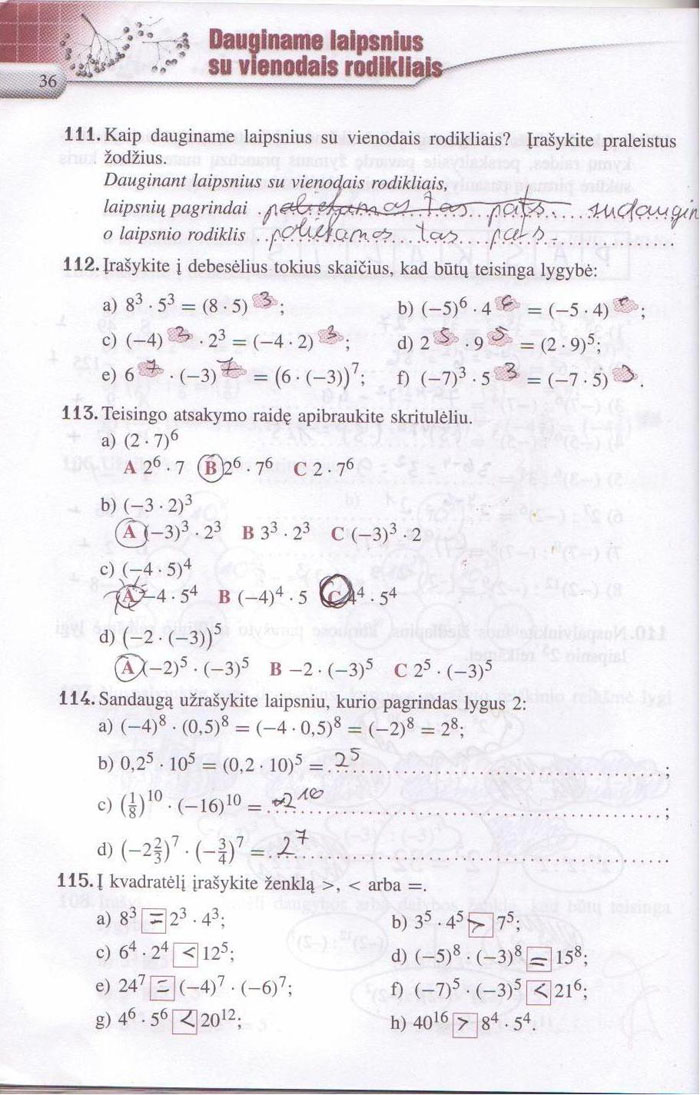 36
Dauginame laipsnius
su vienodais rodikliais
111. Kaip dauginame laipsnius su vienodais rodikliais? Įrašykite praleistus
žodžius.
Dauginant laipsnius su vienodais rodikliais,
laipsnių pagrindai paliekamas tas pats sudaugin
o laipsnio rodiklis paliekamas tas pats.
112. Įrašykite į debesėlius tokius skaičius, kad būtų teisinga lygybė:
a) 8³ · 5³ = (8 · 5)³; b) (−5)⁶ · 4⁶ = (−5 · 4)⁶;
c) (−4)³ · 2³ = (−4 · 2)³; d) 2⁵ · 9⁵ = (2 · 9)⁵;
e) 6⁷ · (−3)⁷ = (6 · (−3))⁷; f) (−7)³ · 5³ = (−7 · 5)³.
113. Teisingo atsakymo raidę apibraukite skrituleliu.
a) (2 · 7)⁶
A 2⁶ · 7 B 2⁶ · 7⁶ C 2 · 7⁶
b) (−3 · 2)³
A (−3)³ · 2³ B 3³ · 2³ C (−3)³ · 2
c) (−4 · 5)⁴
A −4 · 5⁴ B (−4)⁴ · 5 C 4⁴ · 5⁴
d) (−2 · (−3))⁵
A (−2)⁵ · (−3)⁵ B −2 · (−3)⁵ C 2⁵ · (−3)⁵
114. Sandaugą užrašykite laipsniu, kurio pagrindas lygus 2:
a) (−4)⁸ · (0,5)⁸ = (−4 · 0,5)⁸ = (−2)⁸ = 2⁸;
b) 0,2⁵ · 10⁵ = (0,2 · 10)⁵ = 2⁵;
c) (1/8)¹⁰ · (−16)¹⁰ = 2¹⁰;
d) (−2 2/3)⁷ · (−3/4)⁷ = 2⁷
115. Į kvadratėlį įrašykite ženklą >, < arba =.
a) 8³ = 2³ · 4³; b) 3⁵ · 4⁵ > 7⁵;
c) 6⁴ · 2⁴ < 12⁵; d) (−5)⁸ · (−3)⁸ = 15⁸;
e) 24⁷ = (−4)⁷ · (−6)⁷; f) (−7)⁵ · (−3)⁵ < 21⁶;
g) 4⁶ · 5⁶ < 20¹²; h) 40¹⁶ > 8⁴ · 5⁴.